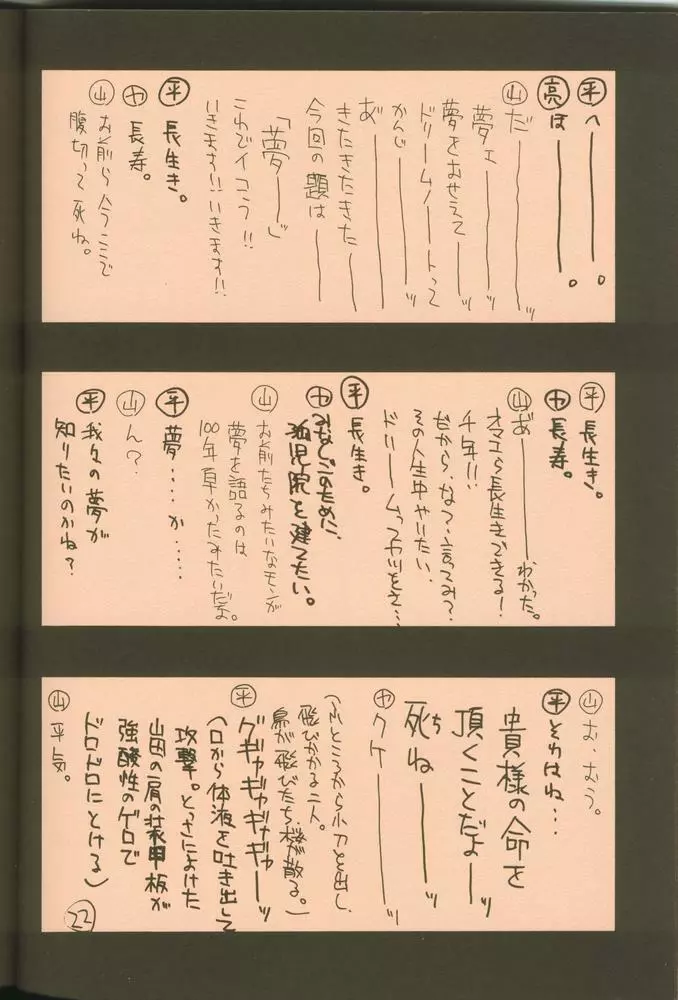 ㊥ へ———。
亮 は———。
山 だ———ッ
夢ェ———ッ
夢をおせえて——ッ
ドリームノートって
かんじ———ッ
あ゛———
きたきたきた——
今回の題は——
「夢——」
これでイコう!!
いきます!!いきます!!
平 長生き。
ヤ 長寿。
山 お前ら今ここで
腹切って死ね。
平 長生き。
ヤ 長寿。
山 あ゛———わかった。
オマエら長生きできる!
千年!!
だから、な?言ってみ?
その人生中やりたい、
ドリームってやつをさ…
平 長生き。
ヤ みなしごのために、
孤児院を建てたい。
山 お前たちみたいなモンが
夢を語るのは
100年早かったみたいだよ。
平 夢‥‥か‥‥‥
山 ん?
平 我々の夢が
知りたいのかね?
山 お、おう。
平 それはね…
貴様の命を
頂くことだよ——ッ
死ちね———ッ
ヤ クケ———ッ
(ふところから小刀を出し、
飛びかかる二人。
鳥が飛びたち、桜が散る。)
平 グギャギャギャギャーッ
(口から体液を吐き出して
攻撃。とっさによけた
山田の肩の装甲板が
強酸性のゲロで
ドロドロにとける)
山 平気。
22